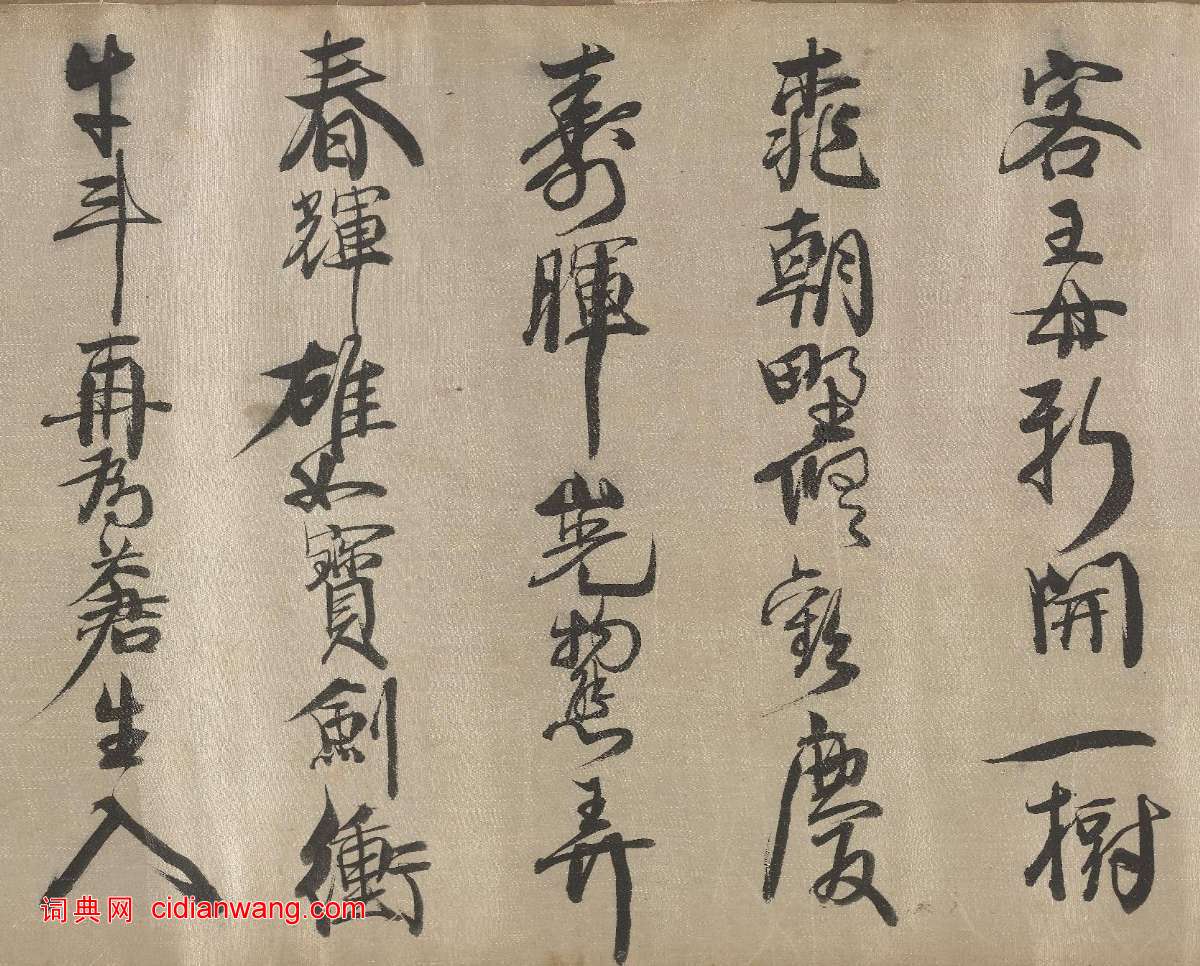 客王母新開一樹
桃朝野歡慶
壽暉山光物態弄
春輝雄如寶劍衝
牛斗再為蒼生入
词典网 cidianwang.com